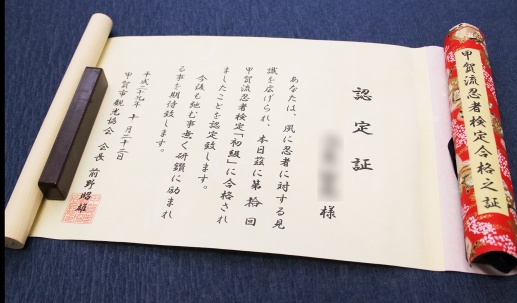 甲賀流忍者検定合格之証
認定証
様
あなたは、夙に忍者に対する見
識を広げられ、本日茲に第拾回
甲賀流忍者検定「初級」に合格され
ましたことを認定致します。
今後も絶む事無く研鑽に励まれ
る事を期待致します。
平成二十九年 十月二十二日
甲賀市観光協会 会長 前野昭雄